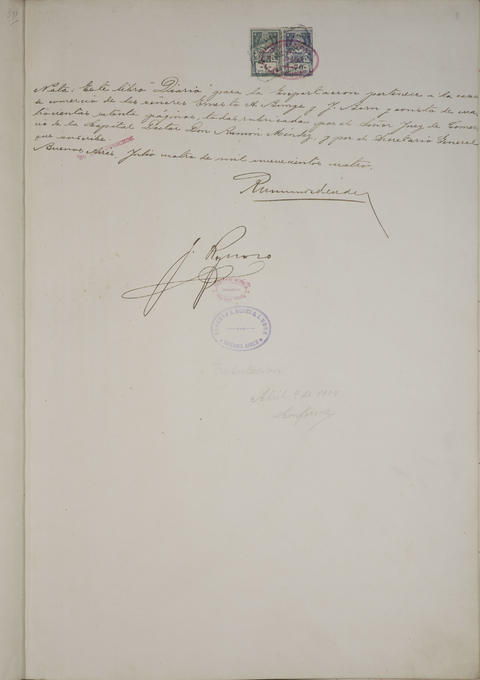 Nota: Este libro "Diario" para la Exportacion pertenece a la casa
de comercio de los señores Ernesto A. Bunge y J. Born y consta de cua-
trocientas setenta paginas, todas rubricadas por el Señor Juez de Comer-
cio de la Capital Doctor Don Ramón Méndez y por el Secretario General
que suscribe.
Buenos Aires, Julio cuatro de mil novecientos cuatro.
Ramon Mendez
ERNESTO A. BUNGE & J. BORN
BUENOS AIRES
Abril 9 de 1914